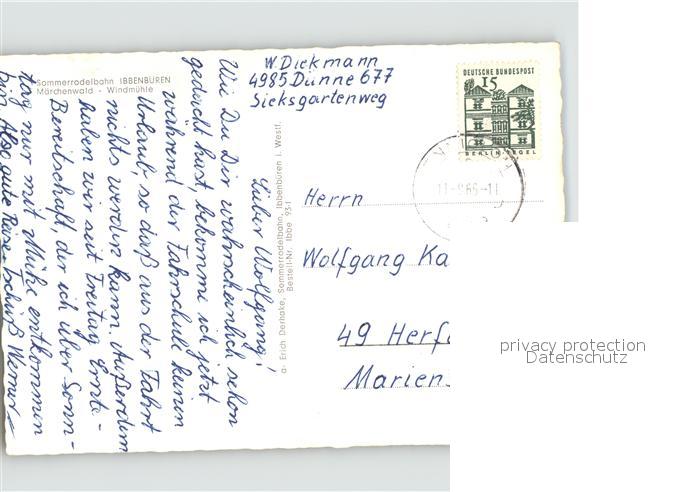 Sommerrodelbahn IBBENBÜREN
Märchenwald - Windmühle
W. Diekmann
4985 Dünne 677
Sieksgartenweg
DEUTSCHE BUNDESPOST
15
BERLIN-TEGEL
Herrn
Wolfgang Ka
49 Herf
Mariens
a. Erich Derhake, Sommerrodelbahn, Ibbenbüren i. Westf.
Bestell-Nr. Ibbe 93-1
Lieber Wolfgang!
Wie Du Dir wahrscheinlich schon
gedacht hast, bekomme ich jetzt
während der Fahrschule keinen
Urlaub, so daß aus der Fahrt
nichts werden kann. Außerdem
haben wir seit Freitag Ernte-
Bereitschaft, der ich über Sonn-
tag nur mit Mühe entkommen
bin. Also gute Reise. Tschüß Werner
privacy protection
Datenschutz